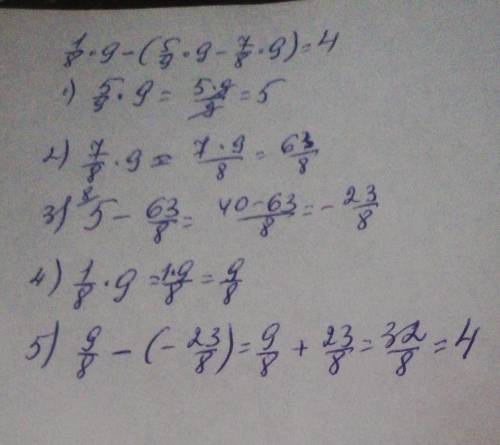 1/8 · 9 − (5/9 · 9 − 7/8 · 9) = 4
1) 5/9 · 9 = 5·9/9 = 5
2) 7/8 · 9 = 7·9/8 = 63/8
3) ⁸5 − 63/8 = 40−63/8 = −23/8
4) 1/8 · 9 = 1·9/8 = 9/8
5) 9/8 − (−23/8) = 9/8 + 23/8 = 32/8 = 4